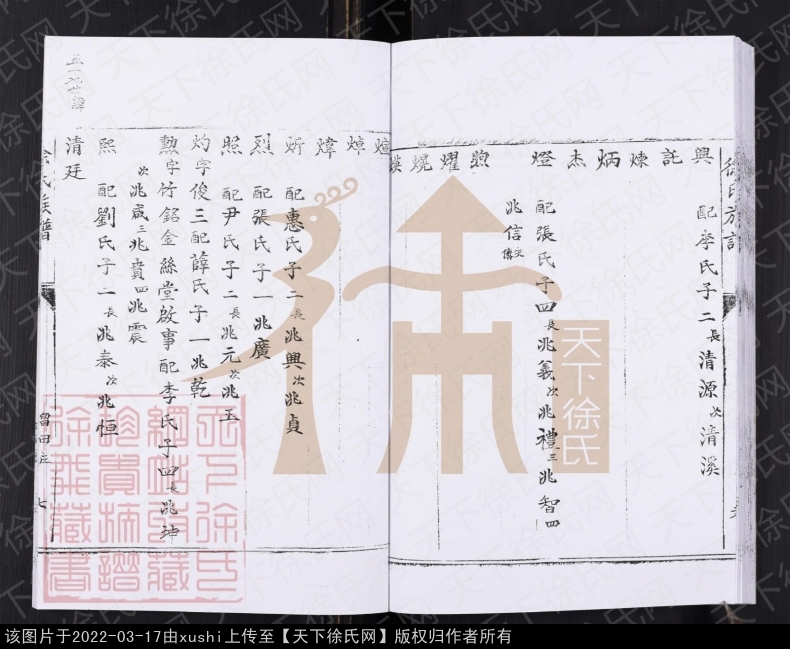 徐氏族譜
興 配李氏子二長清源次清溪
託
煉
炳
杰
燈 配張氏子四長兆義次兆禮三兆智四
兆信
煦
耀
熀
煐
煊
焯
煒
炘 配惠氏子二長兆興次兆貞
烈 配張氏子一兆廣
照 配尹氏子二長兆元次兆玉
灼字俊三配薛氏子一兆乾
勲字竹銘金絲堂啟事配李氏子四長兆坤
次兆咸三兆賁四兆震
熙 配劉氏子二長兆泰次兆恒
清廷
徐氏族譜
留田庄
七
天下徐氏
天下徐氏
網站致藏
珍貴族譜
徐飛藏書
天下徐氏网
该图片于2022-03-17由xushi上传至【天下徐氏网】版权归作者所有